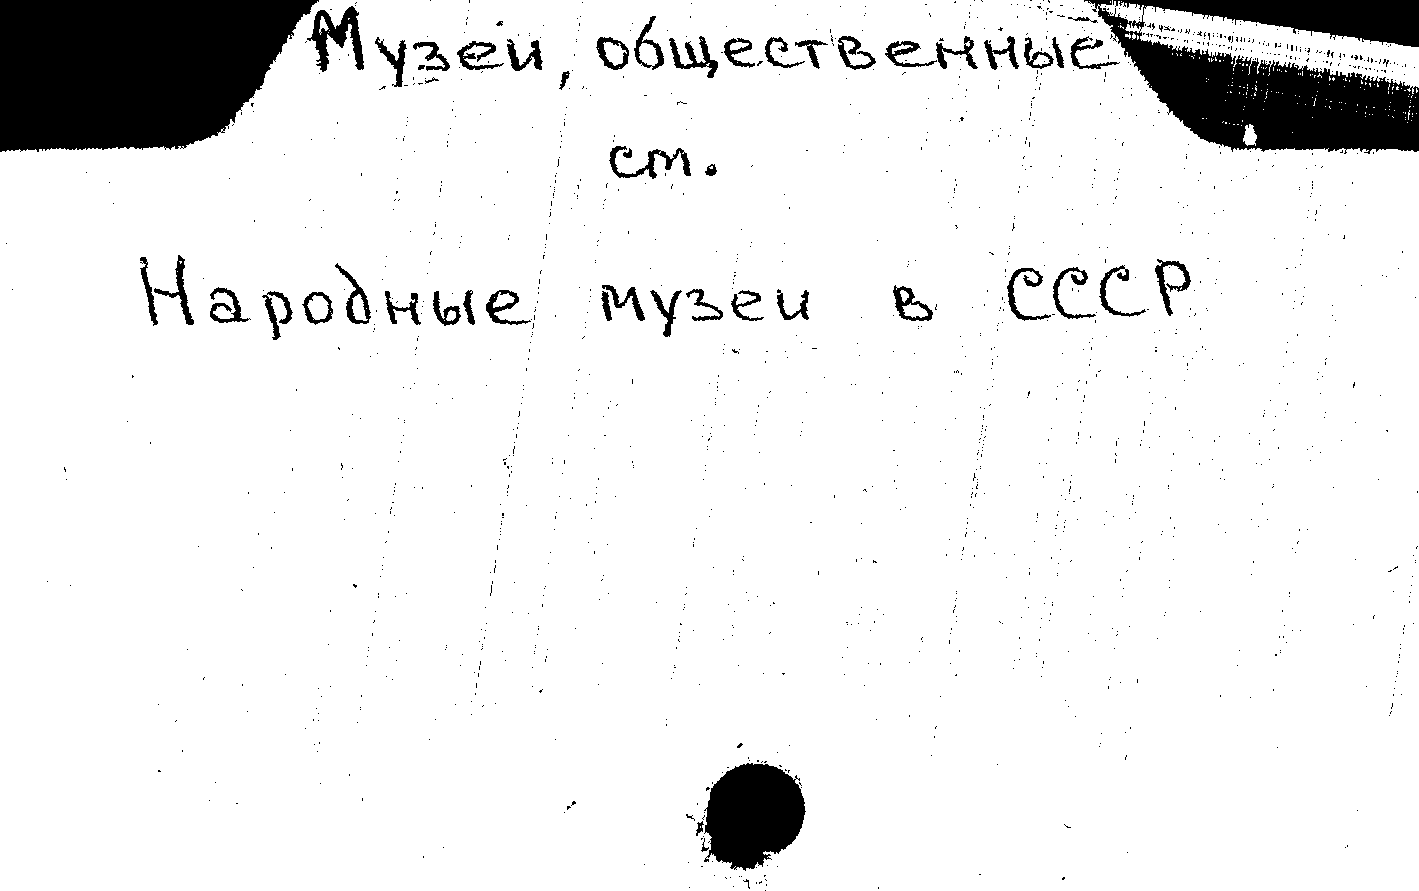 Музеи, общественные
см.
Народные музеи в СССР